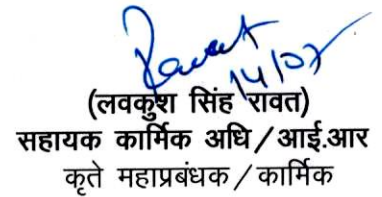 Rawat
14/07
(लवकुश सिंह रावत)
सहायक कार्मिक अधि/आई.आर
कृते महाप्रबंधक/कार्मिक